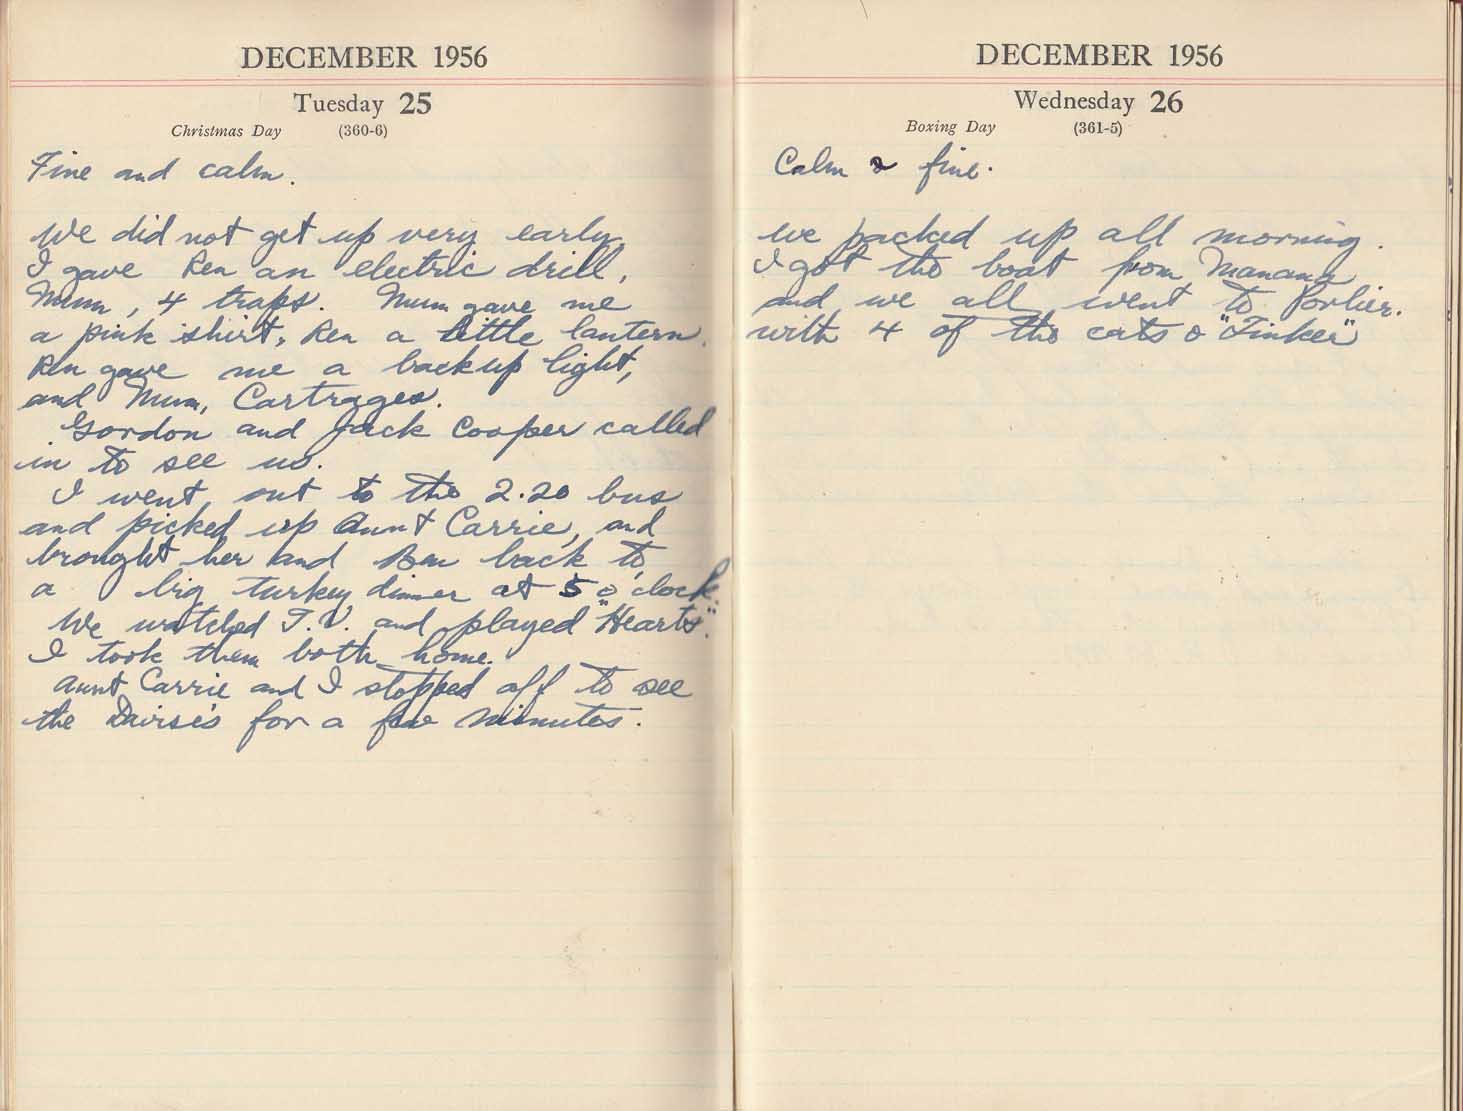 DECEMBER 1956
Tuesday 25
Christmas Day (360-6)
Fine and calm.
We did not get up very early
I gave Rea an electric drill,
Mum, 4 traps. Mum gave me
a pink shirt, Rea a little lantern.
Rea gave me a backup light,
and Mum, Cartrages.
Gordon and Jack Cooper called
in to see us.
I went out to the 2.20 bus
and picked up Aunt Carrie, and
brought her and Ben back to
a big turkey dinner at 5 o'clock.
We watched T.V. and played "Hearts".
I took them both home.
Aunt Carrie and I stopped off to see
the for a few minutes.
DECEMBER 1956
Wednesday 26
Boxing Day (361-5)
Calm & fine.
we packed up all morning.
I got the boat from
and we all went to Porlier.
with 4 of the cats & "Tinker"